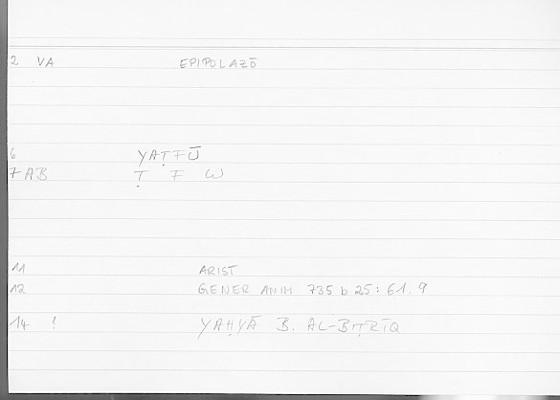 2 VA EPIPOLAZŌ
6 YAṬFŪ
7 AB Ṭ F W
11 ARIST
12 GENER ANIM 735 b 25: 61.9
14 ! YAḤYĀ B. AL-BIṬRĪQ